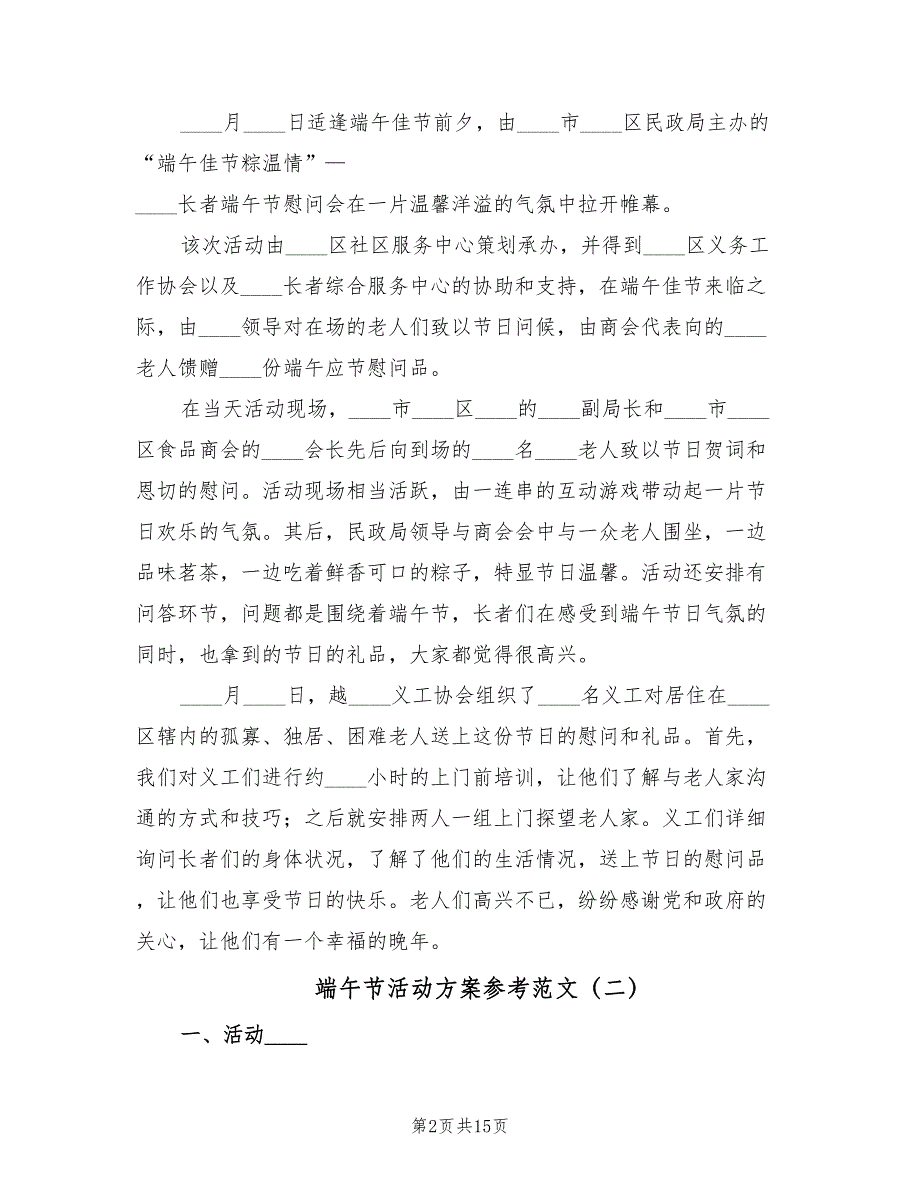 ____月____日适逢端午佳节前夕，由____市____区民政局主办的
“端午佳节粽温情”—
____长者端午节慰问会在一片温馨洋溢的气氛中拉开帷幕。
该次活动由____区社区服务中心策划承办，并得到____区义务工
作协会以及____长者综合服务中心的协助和支持，在端午佳节来临之
际，由____领导对在场的老人们致以节日问候，由商会代表向的____
老人馈赠____份端午应节慰问品。
在当天活动现场，____市____区____的____副局长和____市____
区食品商会的____会长先后向到场的____名____老人致以节日贺词和
恩切的慰问。活动现场相当活跃，由一连串的互动游戏带动起一片节
日欢乐的气氛。其后，民政局领导与商会会中与一众老人围坐，一边
品味茗茶，一边吃着鲜香可口的粽子，特显节日温馨。活动还安排有
问答环节，问题都是围绕着端午节，长者们在感受到端午节日气氛的
同时，也拿到的节日的礼品，大家都觉得很高兴。
____月____日，越____义工协会组织了____名义工对居住在____
区辖内的孤寡、独居、困难老人送上这份节日的慰问和礼品。首先，
我们对义工们进行约____小时的上门前培训，让他们了解与老人家沟
通的方式和技巧；之后就安排两人一组上门探望老人家。义工们详细
询问长者们的身体状况，了解了他们的生活情况，送上节日的慰问品
，让他们也享受节日的快乐。老人们高兴不已，纷纷感谢党和政府的
关心，让他们有一个幸福的晚年。
端午节活动方案参考范文（二）
一、活动____
第2页共15页